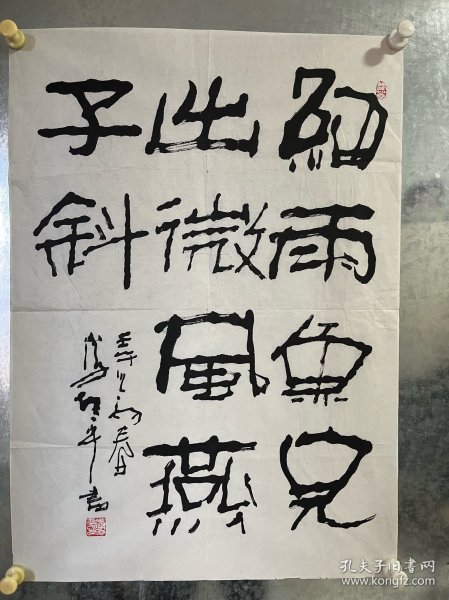 细雨鱼儿
出微风燕
子斜
壬午初春
孔夫子旧书网
www.kongfz.com